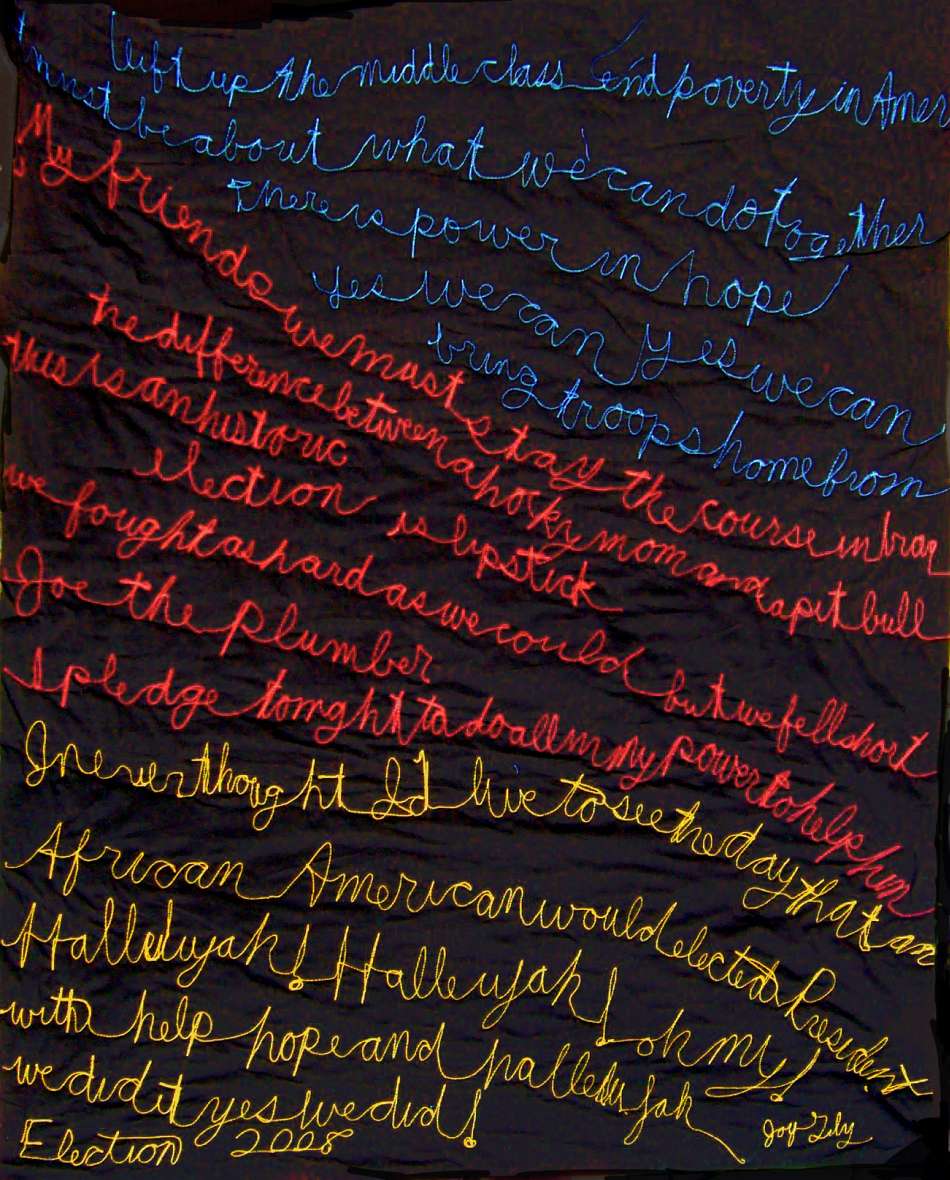 lift up the middle class end poverty in Amer
must be about what we can do together
There is power in hope
yes we can yes we can
bring troops home from
My friends we must stay the course in Iraq
the difference between a hocky mom and a pit bull
is lipstick
this is an historic
election
we fought as hard as we could but we fell short
Joe the plumber
I pledge tonight to do all in my power to help him
I never thought I'd live to see the day that an
African American would elected President
Hallelujah! Hallelujah! oh my!
with help hope and hallelujah
we did it yes we did!
Election 2008